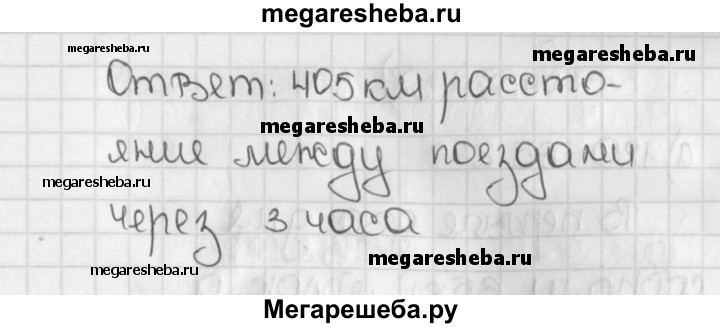 megaresheba.ru
megaresheba.ru
megaresheba.ru
Ответ: 405 км рассто-
megaresheba.ru
яние между поездами
megaresheba.ru
через 3 часа
megaresheba.ru
megaresheba.ru
Мегарешеба.ру